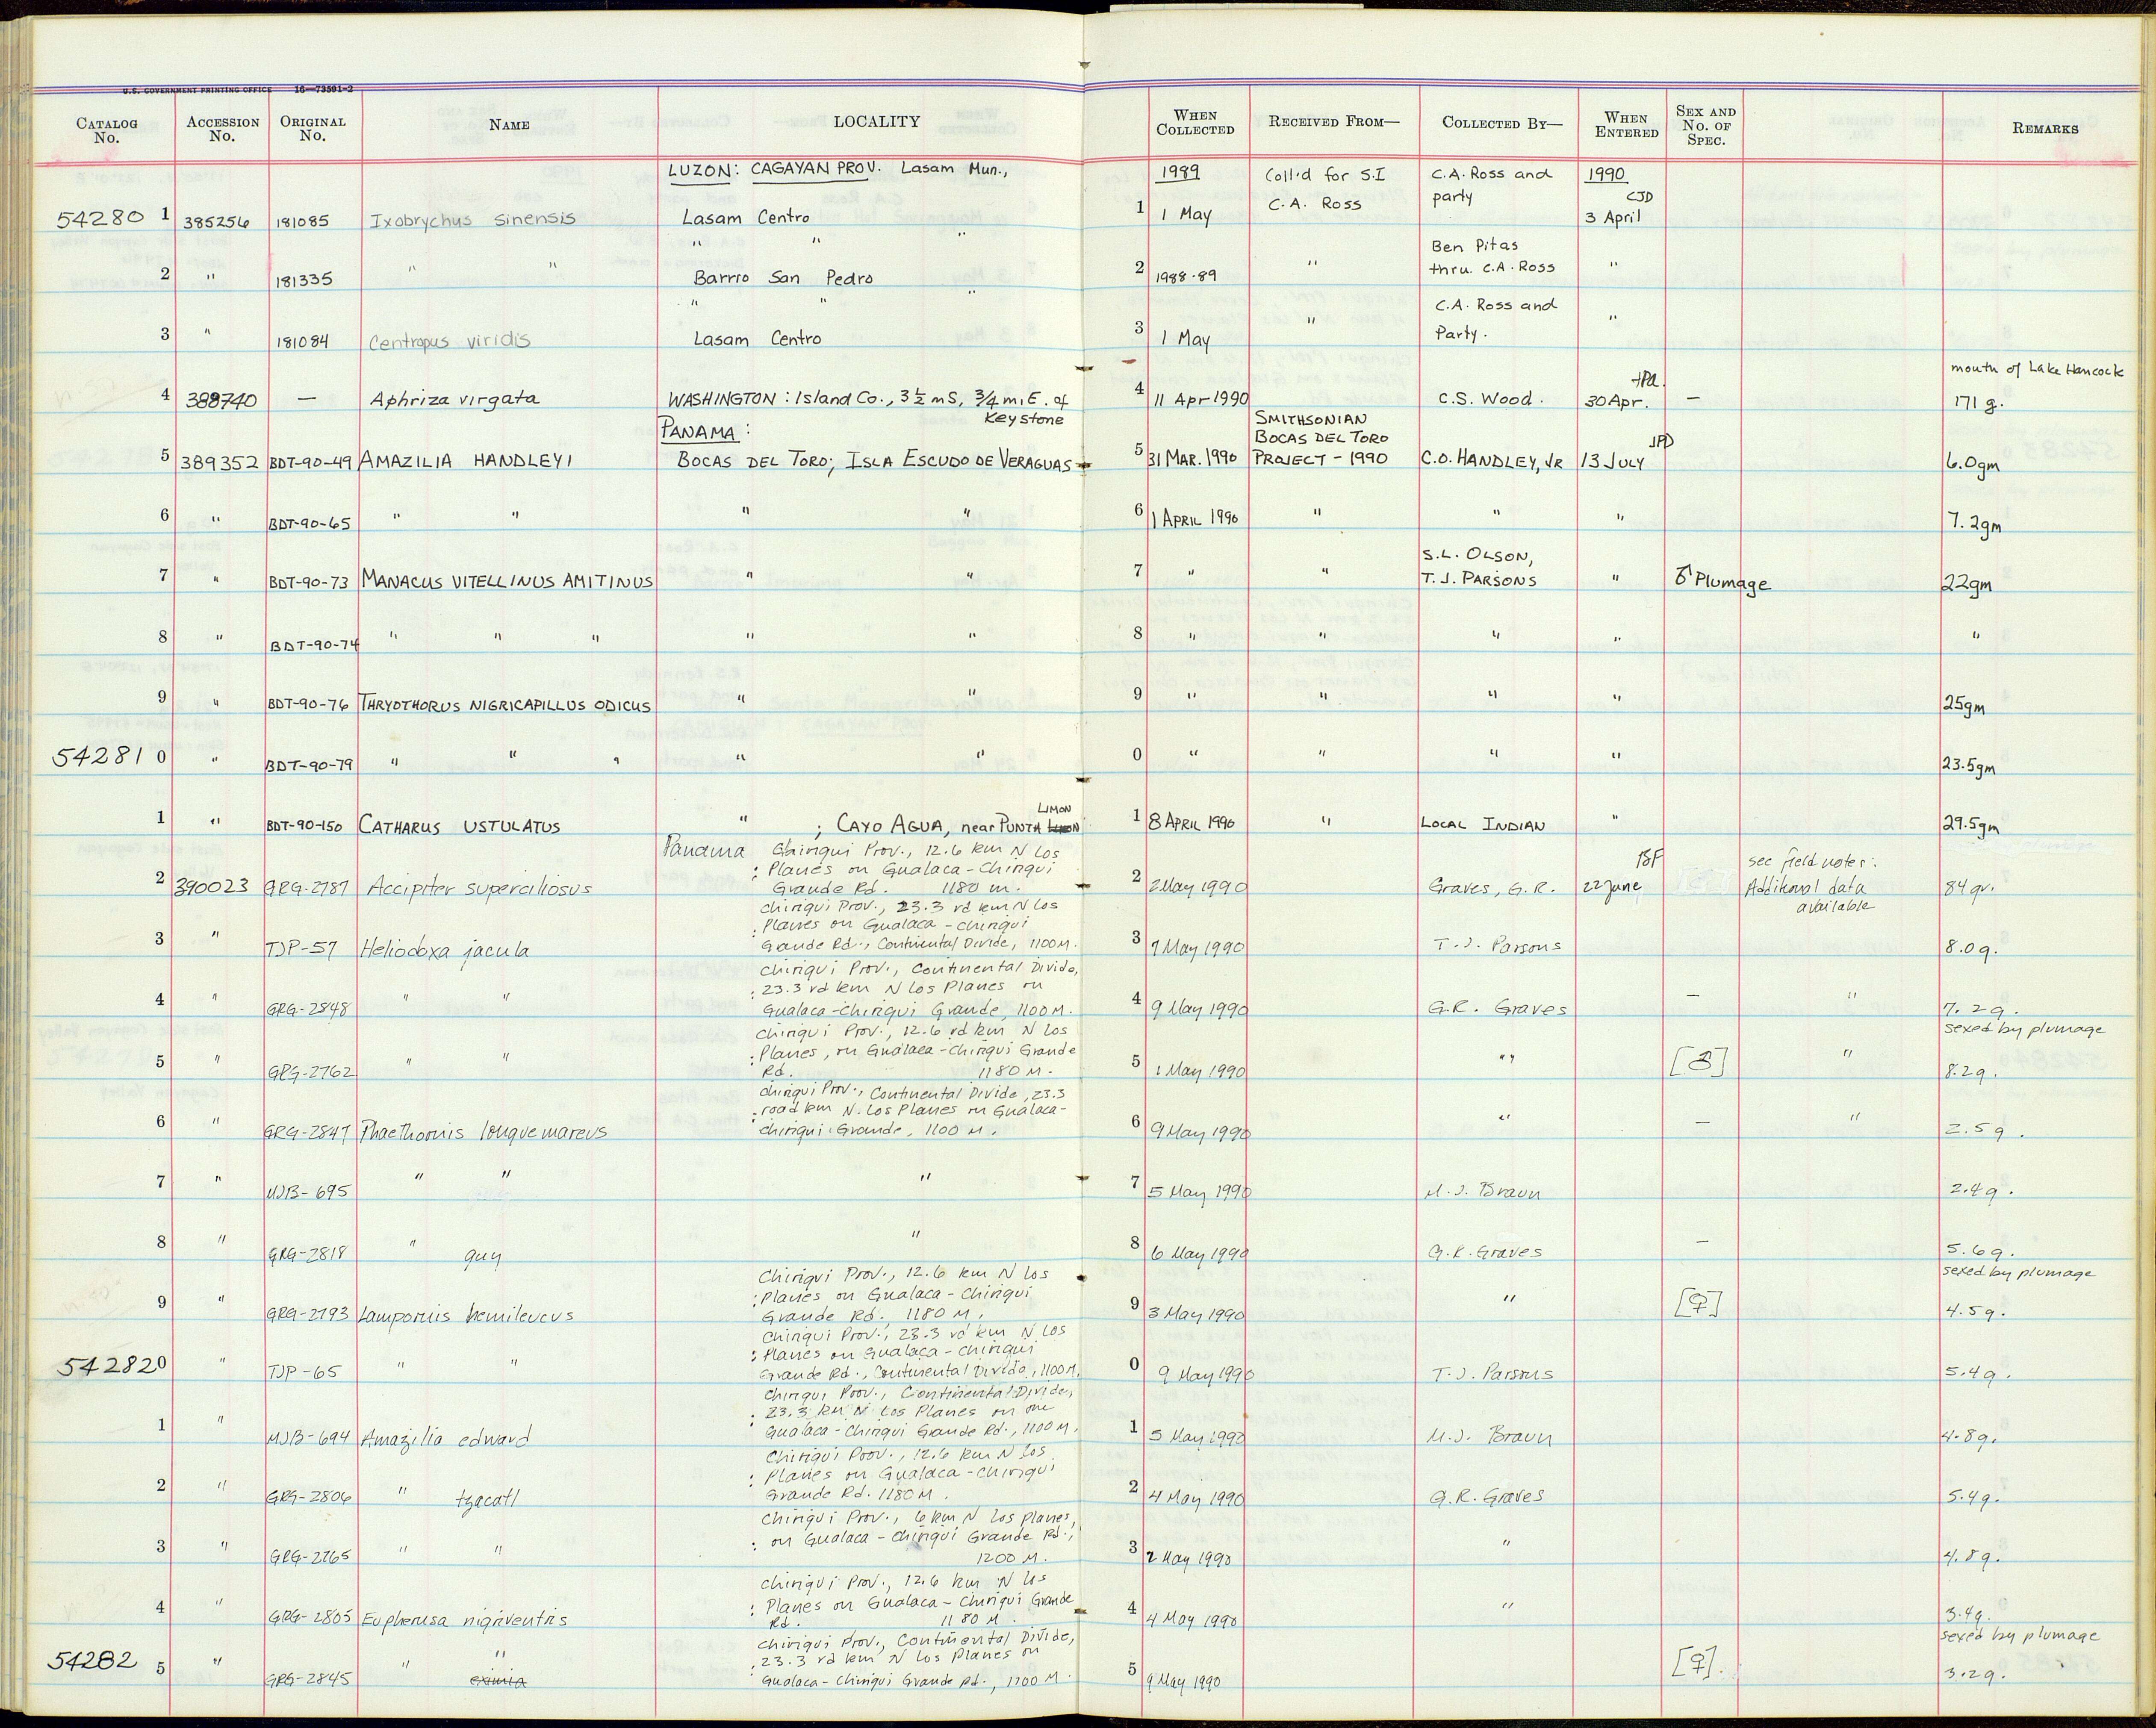 U.S. GOVERNMENT PRINTING OFFICE 16—73591-2
CATALOG No. ACCESSION No. ORIGINAL No. NAME LOCALITY WHEN COLLECTED RECEIVED FROM— COLLECTED BY— WHEN ENTERED SEX AND No. OF SPEC. REMARKS
LUZON: CAGAYAN PROV. Lasam Mun., 1989 Coll'd for S.I C.A. Ross and 1990
C.A. Ross party CJD
54280 1 385256 181085 Ixobrychus sinensis Lasam Centro 1 1 May 3 April
" " " Ben Pitas
2 " 181335 " " Barrio San Pedro 2 1988-89 " thru. C.A. Ross "
" " " C.A. Ross and
3 " 181084 Centropus viridis Lasam Centro 3 1 May " Party. "
mouth of Lake Hancock
4 388740 — Aphriza virgata WASHINGTON: Island Co., 3½ mS, 3/4 mi E. of 4 11 Apr 1990 C.S. Wood. 30 Apr. — 171 g.
Keystone SMITHSONIAN
PANAMA: BOCAS DEL TORO JPD
5 389352 BDT-90-49 AMAZILIA HANDLEYI BOCAS DEL TORO; ISLA ESCUDO DE VERAGUAS 5 31 MAR. 1990 PROJECT - 1990 C.O. HANDLEY, JR 13 JULY 6.0gm
6 " BDT-90-65 " " " " 6 1 APRIL 1990 " " " 7.2gm
S.L. OLSON,
7 " BDT-90-73 MANACUS VITELLINUS AMITINUS " " 7 " " T.J. PARSONS " ♂ Plumage 22gm
8 " BDT-90-74 " " " " " 8 " " " " "
9 " BDT-90-76 THRYOTHORUS NIGRICAPILLUS ODICUS " " 9 " " " " 25gm
54281 0 " BDT-90-79 " " " " " 0 " " " " 23.5gm
LIMON
1 " BDT-90-150 CATHARUS USTULATUS " ; CAYO AGUA, near PUNTA 1 8 APRIL 1990 " LOCAL INDIAN " 29.5gm
Panama Chiriqui Prov., 12.6 km N Los
: Planes on Gualaca-Chiriqui BF see field notes:
2 390023 GRG-2787 Accipiter superciliosus Grande Rd. 1180 m. 2 2 May 1990 Graves, G.R. 22 June Additional data 84 gr.
available
Chiriqui Prov., 23.3 rd km N Los
: Planes on Gualaca - Chiriqui
3 " TJP-57 Heliodoxa jacula Gande Rd., Continental Divide, 1100M. 3 9 May 1990 T.J. Parsons 8.0g.
Chiriqui Prov., Continental Divide,
: 23.3 rd km N Los Planes on
4 " GRG-2848 " " Gualaca-Chiriqui Grande, 1100M. 4 9 May 1990 G.R. Graves — " 7.2g.
Chiriqui Prov., 12.6 rd km N Los sexed by plumage
: Planes, on Gualaca-Chiriqui Grande
5 " GRG-2762 " " Rd. 1180 M. 5 1 May 1990 " " [♂] " 8.2g.
Chiriqui Prov., Continental Divide, 23.3
: road km N. Los Planes on Gualaca-
6 " GRG-2847 Phaethornis longuemareus Chiriqui Grande, 1100 M. 6 9 May 1990 " — " 2.5g.
7 " MJB-695 " " " 7 5 May 1990 M.J. Braun 2.4g.
8 " GRG-2818 " guy " 8 6 May 1990 G.R. Graves — 5.6g.
Chiriqui Prov., 12.6 km N Los sexed by plumage
: Planes on Gualaca - Chiriqui
9 " GRG-2793 Lampornis hemileucus Grande Rd. 1180 M. 9 3 May 1990 " [♀] 4.5g.
Chiriqui Prov., 23.3 rd km N Los
: Planes on Gualaca - Chiriqui
54282 0 " TJP-65 " " Grande Rd., Continental Divide, 1100M. 0 9 May 1990 T.J. Parsons 5.4g.
Chiriqui Prov., Continental Divide,
: 23.3 km N Los Planes on
1 " MJB-694 Amazilia edward Gualaca-Chiriqui Grande Rd., 1100 M. 1 5 May 1990 M.J. Braun 4.8g.
Chiriqui Prov., 12.6 km N Los
: Planes on Gualaca-Chiriqui
2 " GRG-2806 " tzacatl Grande Rd. 1180M. 2 4 May 1990 G.R. Graves 5.4g.
Chiriqui Prov., 6 km N Los Planes,
: on Gualaca - Chiriqui Grande Rd.,
3 " GRG-2765 " " 1200 M. 3 2 May 1990 " 4.8g.
Chiriqui Prov., 12.6 km N Los
: Planes on Gualaca - Chiriqui Grande
4 " GRG-2805 Eupherusa nigriventris Rd. 1180 M. 4 4 May 1990 " 3.4g.
Chiriqui Prov., Continental Divide, sexed by plumage
" : 23.3 rd km N Los Planes on
54282 5 " GRG-2845 " eximia Gualaca-Chiriqui Grande Rd., 1100 M. 5 9 May 1990 [♀]. 3.2g.